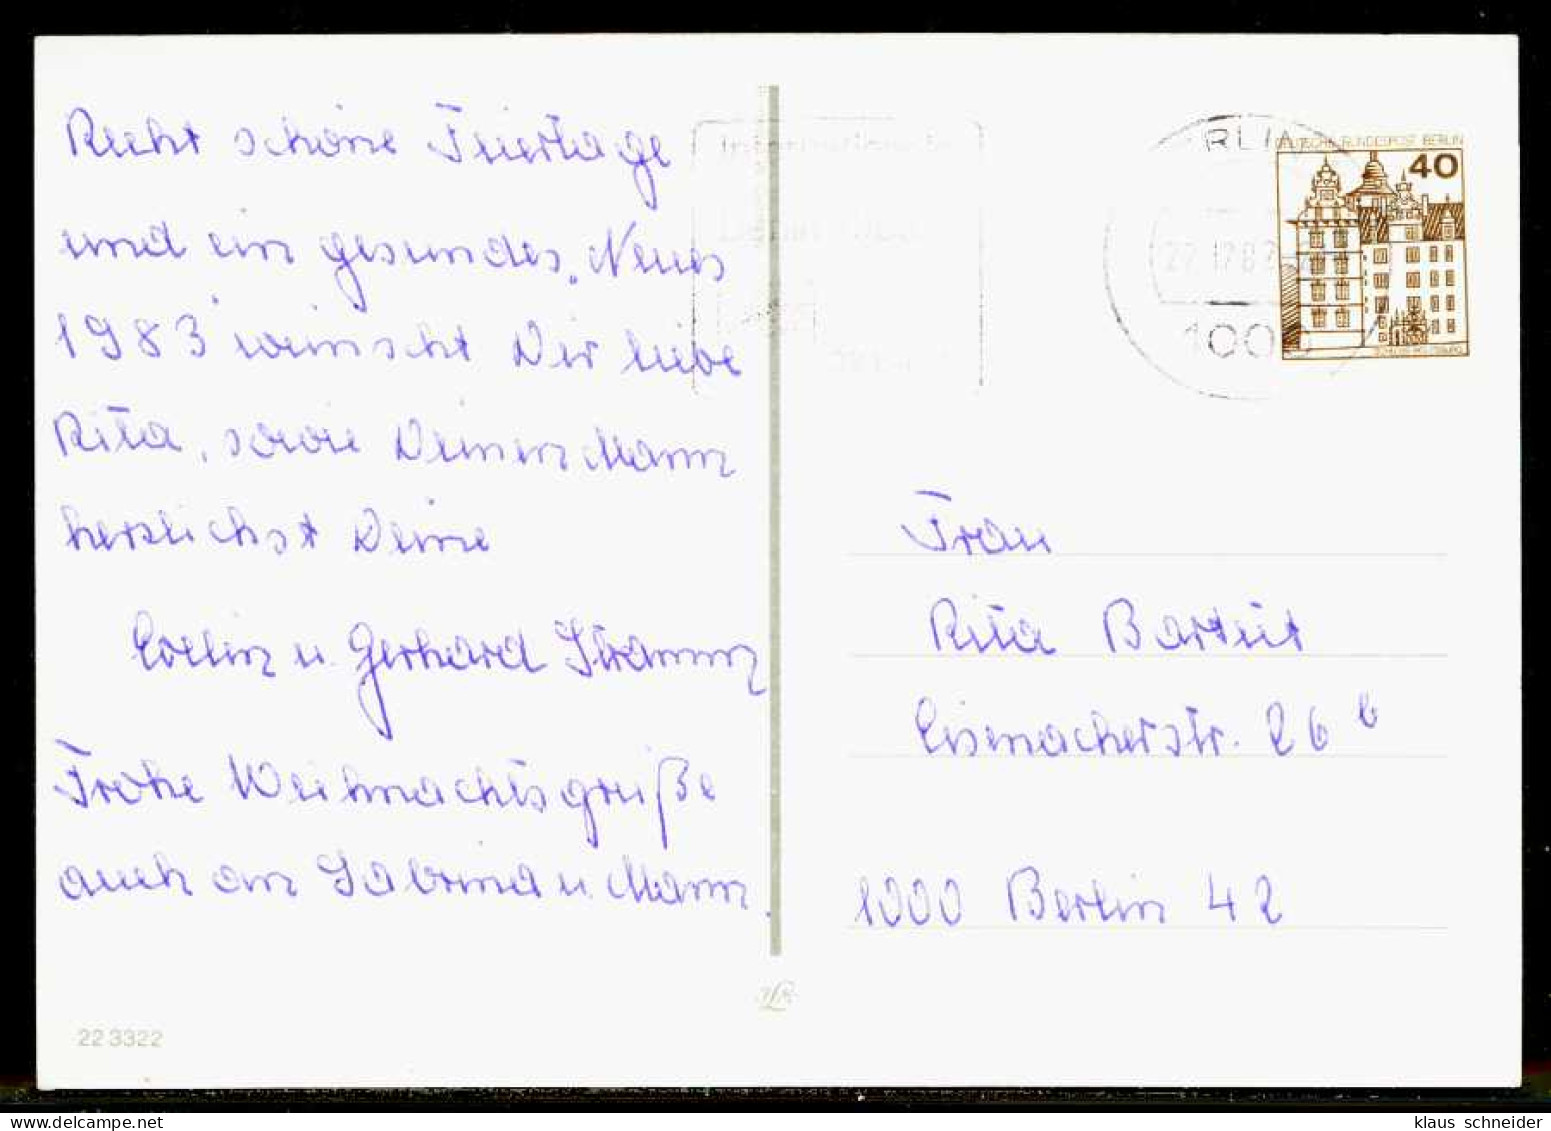 Recht schöne Feiertage
und ein gesundes „Neues
1983" wünscht Dir liebe
Rita, sowie Deinen Mann
herzlichst Deine
Evelin u. Gerhard Stramm
Frohe Weihnachtsgrüße
auch an Sabrina u. Mann.
22 3322
RLIN
22.12.82
1000
DEUTSCHE BUNDESPOST BERLIN
40
SCHLOSS WOLFSBURG
Frau
Rita Barteit
Eisenacherstr. 26 b
1000 Berlin 42
klaus schneider